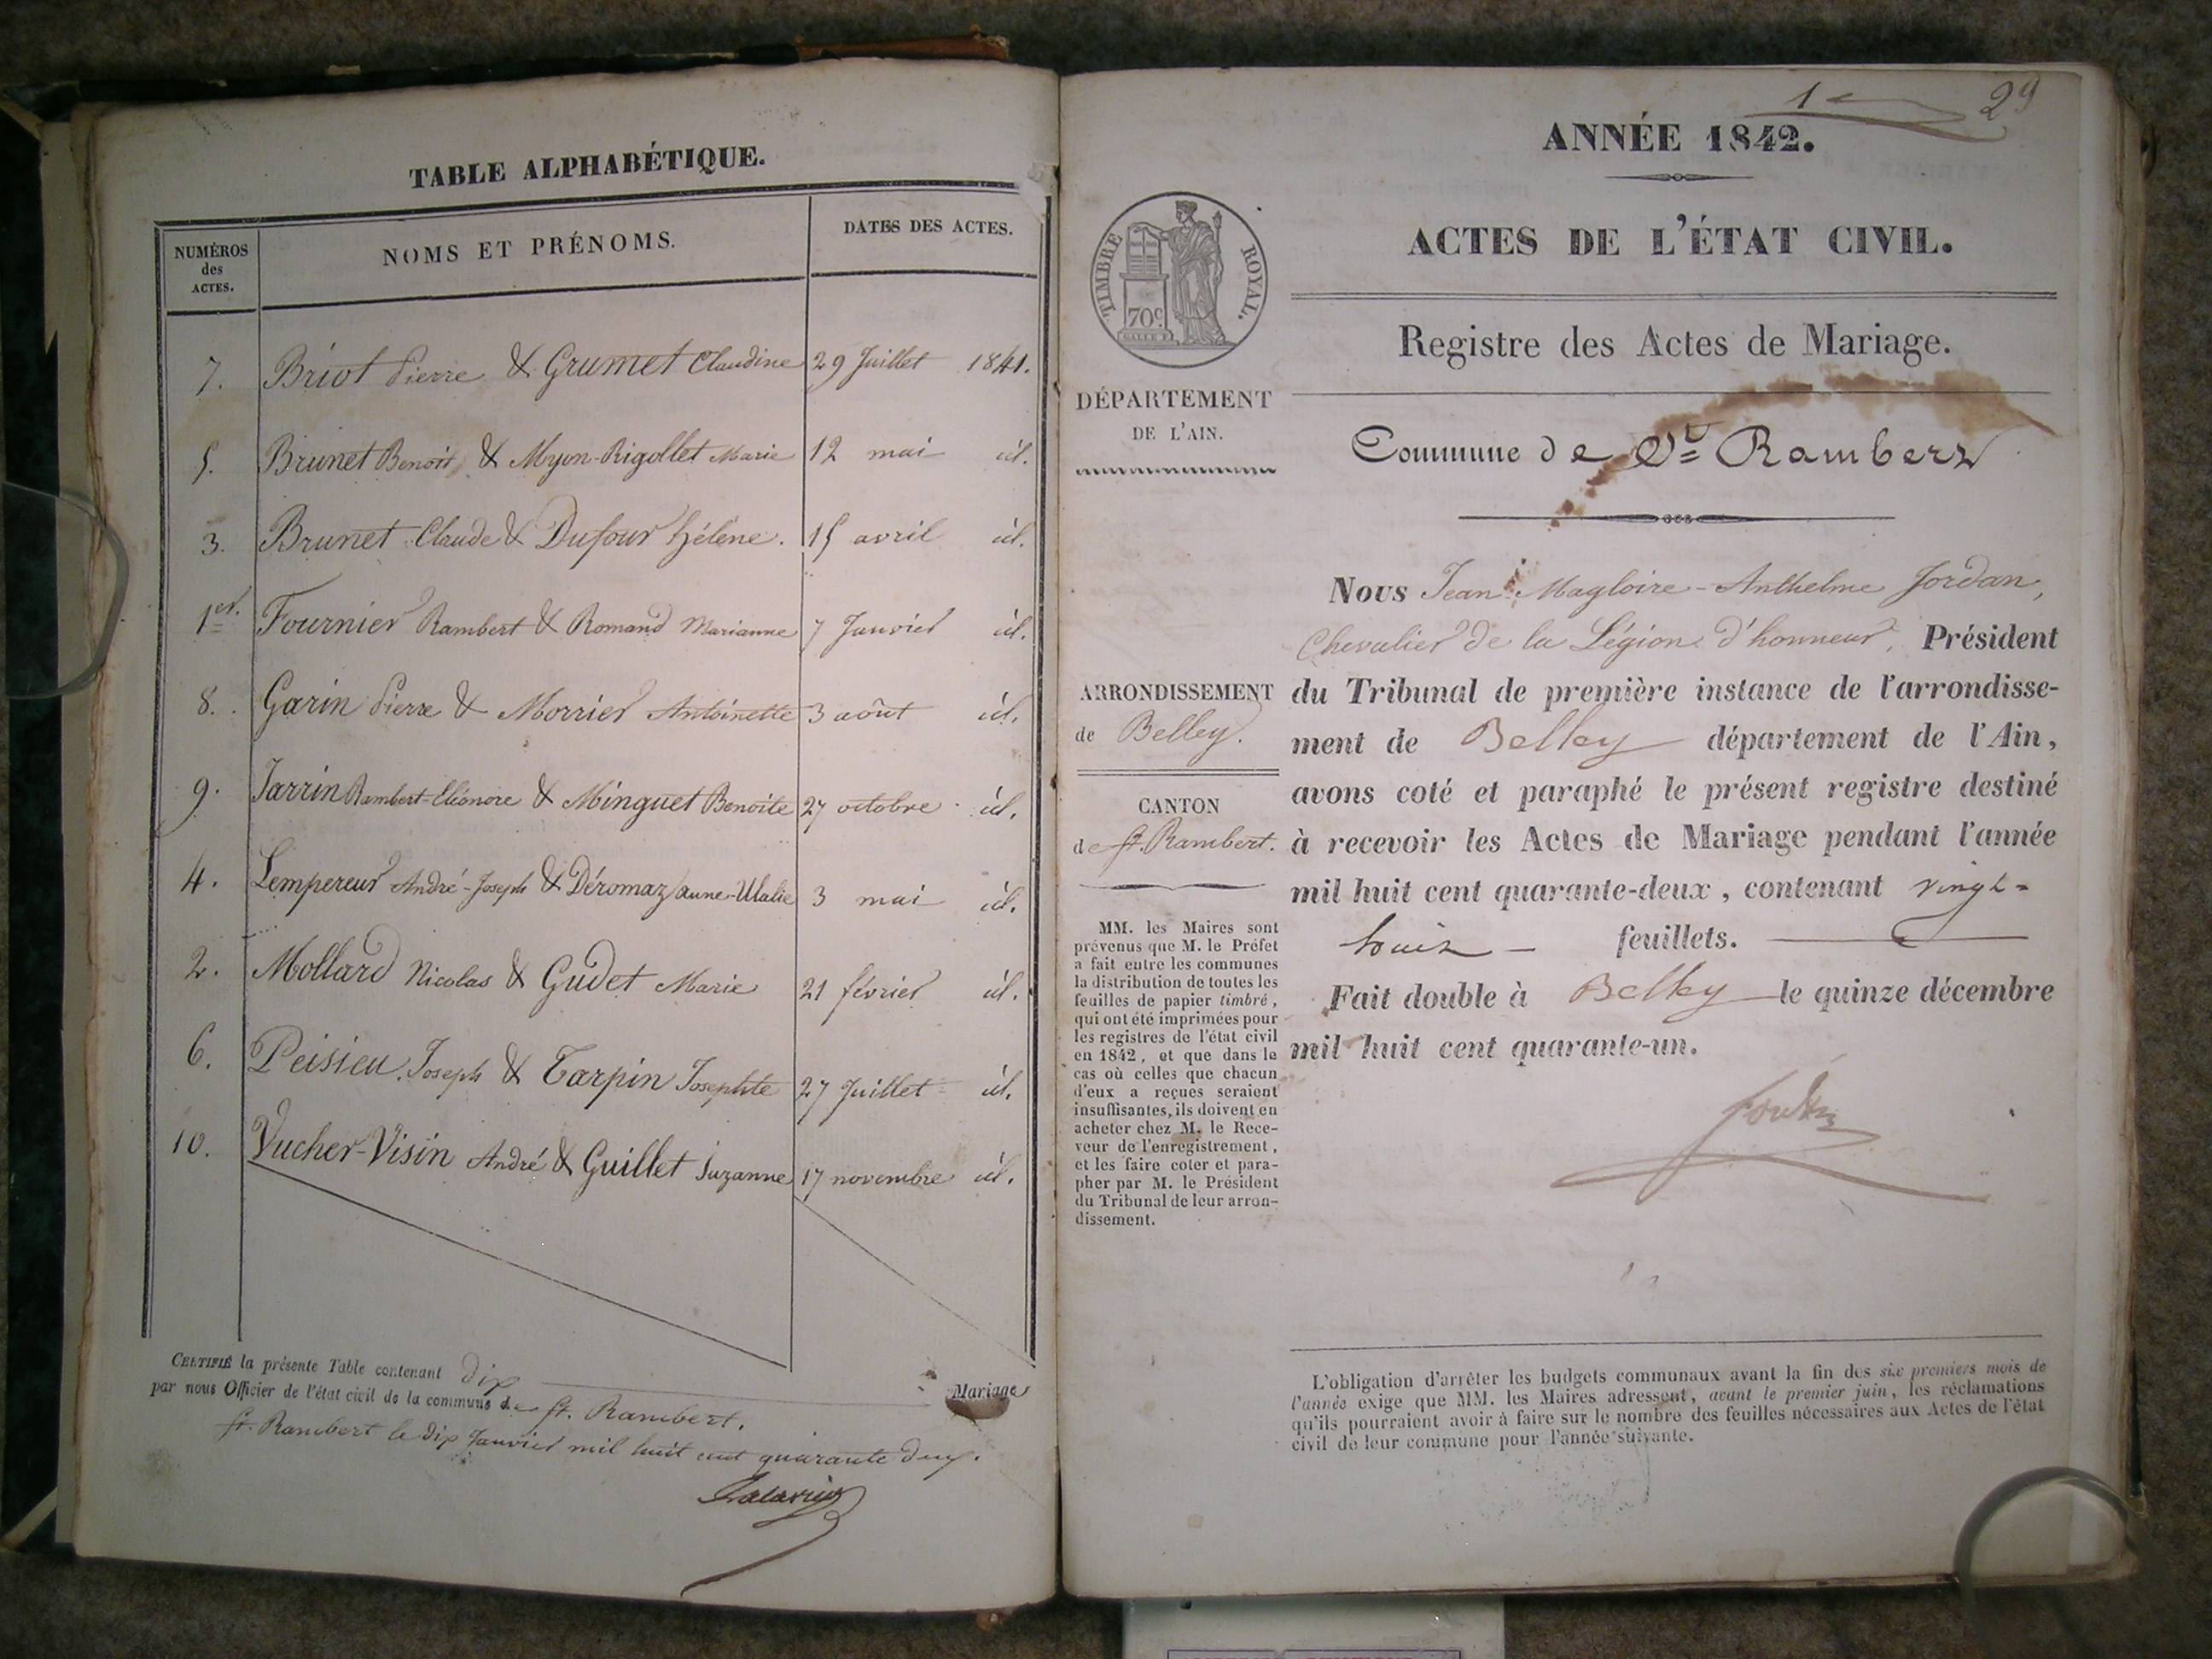 TABLE ALPHABÉTIQUE.
NUMÉROS
des
ACTES.
NOMS ET PRÉNOMS.
DATES DES ACTES.
7. Briot Pierre & Grumet Claudine 29 Juillet 1841.
5. Brunet Benoit & Myon-Rigollet Marie 12 mai id.
3. Brunet Claude & Dufour hélène. 15 avril id.
1er. Fournier Rambert & Romand Marianne 7 Janvier id.
8. Garin Pierre & Morrier Antoinette 3 août id.
9. Jarrin Rambert-Eléonore & Minguet Benoite 27 octobre id.
4. Lempereur André-Joseph & Déromaz Jaune-Ulalie 3 mai id.
2. Mollard Nicolas & Gudet Marie 21 février id.
6. Peisieu Joseph & Tarpin Josephte 27 Juillet id.
10. Vucher-Visin André & Guillet Suzanne 17 novembre id.
CERTIFIÉ la présente Table contenant dix
par nous Officier de l'état civil de la commune de St. Rambert.
St. Rambert le dix Janvier mil huit cent quarante deux.
Mariages
1e 29
ANNÉE 1842.
ACTES DE L'ÉTAT CIVIL.
Registre des Actes de Mariage.
Commune de St Rambert
TIMBRE ROYAL.
70c
DÉPARTEMENT
DE L'AIN.
ARRONDISSEMENT
de Belley.
CANTON
de St. Rambert.
MM. les Maires sont
prévenus que M. le Préfet
a fait entre les communes
la distribution de toutes les
feuilles de papier timbré,
qui ont été imprimées pour
les registres de l'état civil
en 1842, et que dans le
cas où celles que chacun
d'eux a reçues seraient
insuffisantes, ils doivent en
acheter chez M. le Rece-
veur de l'enregistrement,
et les faire coter et para-
pher par M. le Président
du Tribunal de leur arron-
dissement.
Nous Jean-Magloire-Anthelme Jordan,
Chevalier de la Légion d'honneur, Président
du Tribunal de première instance de l'arrondisse-
ment de Belley département de l'Ain,
avons coté et paraphé le présent registre destiné
à recevoir les Actes de Mariage pendant l'année
mil huit cent quarante-deux, contenant vingt-
huit feuillets.
Fait double à Belley le quinze décembre
mil huit cent quarante-un.
Jordan
L'obligation d'arrêter les budgets communaux avant la fin des six premiers mois de
l'année exige que MM. les Maires adressent, avant le premier juin, les réclamations
qu'ils pourraient avoir à faire sur le nombre des feuilles nécessaires aux Actes de l'état
civil de leur commune pour l'année suivante.